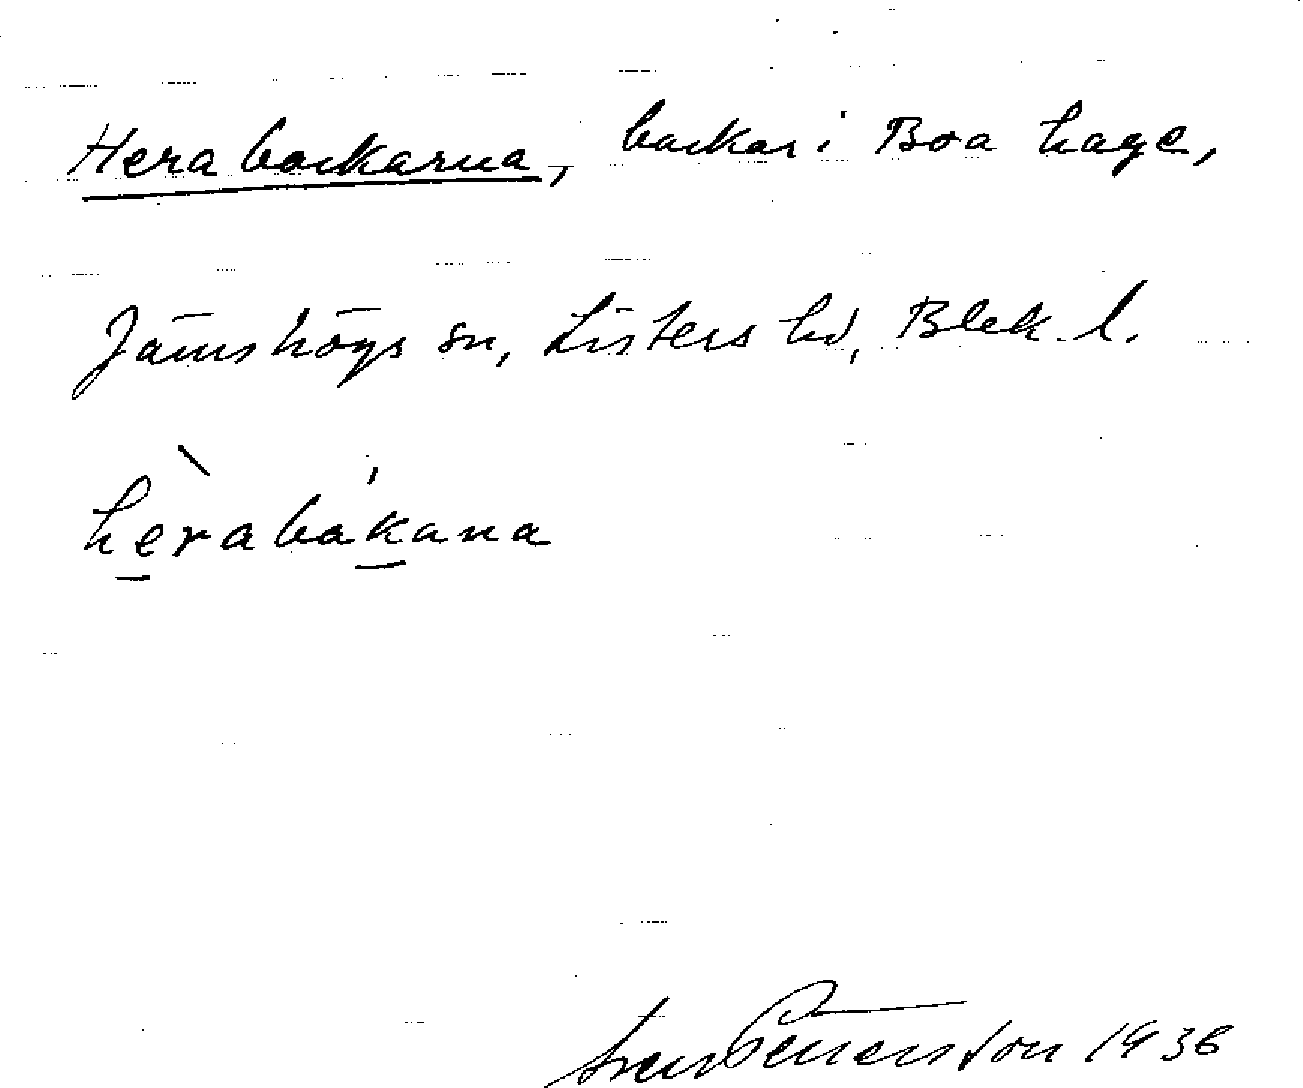 Herabackarna, backar i Boa hage,
Jämshögs sn, Listers hd, Blek. l.
hèrabákana
Sven Pettersson 1936